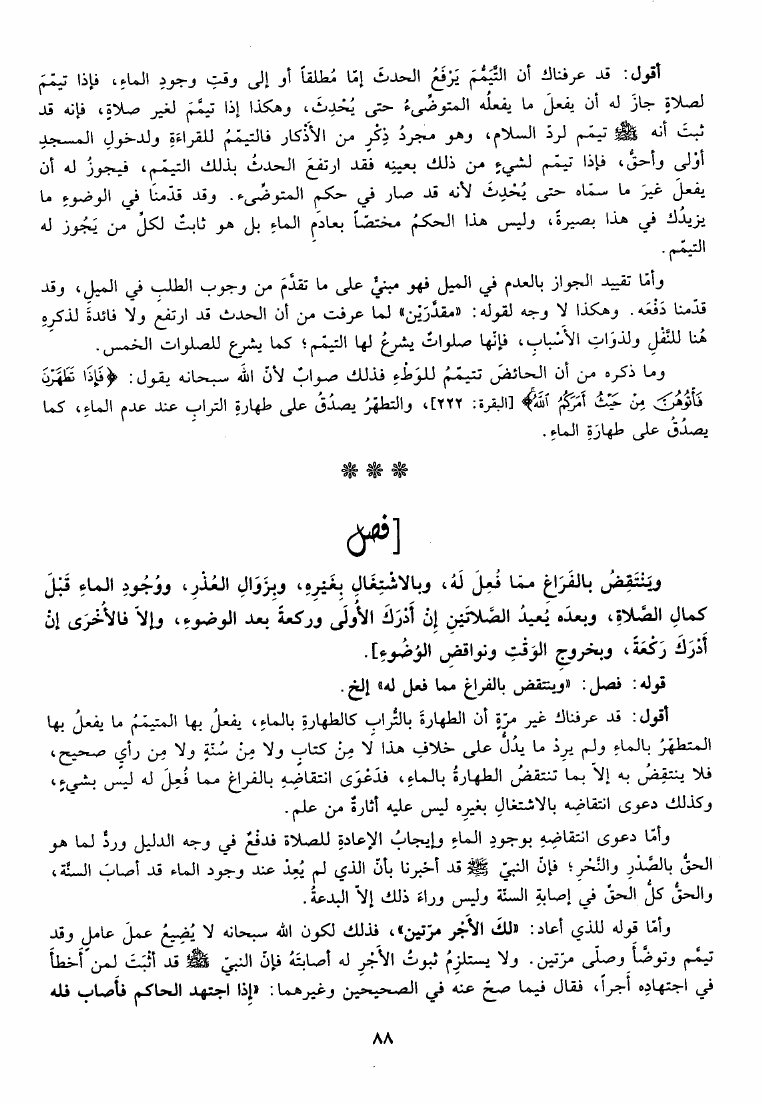 أقول: قد عرفناك أن التَّيَمُّمَ يَرْفَعُ الحدثَ إمّا مُطلقاً أو إلى وقتِ وجودِ الماءِ، فإذا تيمّمَ
لصلاةٍ جازَ له أن يفعلَ ما يفعلُه المتوضّىءُ حتى يُحْدِثَ، وهكذا إذا تيمَّمَ لغير صلاةٍ، فإنه قد
ثبتَ أنه ﷺ تيمّم لردّ السلام، وهو مجردُ ذِكْرٍ من الأَذْكار فالتيمّمُ للقراءَةِ ولدخولِ المسجدِ
أوْلى وأحقُّ، فإذا تيمّم لشيءٍ من ذلك بعينِه فقد ارتفعَ الحدثُ بذلك التيمّم، فيجوزُ له أن
يفعلَ غيرَ ما سمّاه حتى يُحْدِثَ لأنه قد صار في حكمِ المتوضّىء. وقد قدّمنَا في الوضوءِ ما
يزيدُك في هذا بصيرةً، وليس هذا الحكمُ مختصّاً بعادَمِ الماءِ بل هو ثابتٌ لكلِّ من يَجُوز له
التيمّم.
وأمّا تقييد الجواز بالعدم في الميل فهو مبنيٌّ على ما تقدَّمَ من وجوب الطلبِ في الميلِ، وقد
قدّمنا دَفْعَه. وهكذا لا وجه لقوله: «مقدَّرَيْن» لما عرفت من أن الحدث قد ارتفع ولا فائدةَ لذكرِهِ
هُنا للنَّفْلِ ولذوَاتِ الأَسْبابِ، فإنّها صلواتٌ يشرعُ لها التيمّم؛ كما يشرع للصلوات الخمس.
وما ذكره من أن الحائضَ تتيمّمُ للوَطْءِ فذلك صوابٌ لأنّ الله سبحانه يقول: ﴿فَإِذَا تَطَهَّرْنَ
فَأْتُوهُنَّ مِنْ حَيْثُ أَمَرَكُمُ ٱللَّهُ﴾ [البقرة: ٢٢٢]، والتطهّرُ يصدُقُ على طهارةِ الترابِ عند عدم الماءِ، كما
يصدُقُ على طهارَةِ الماءِ.
❊ ❊ ❊
[فصل
ويَنْتَقِضُ بالفَرَاغِ ممّا فُعِلَ لَهُ، وبالاشْتِغَالِ بِغَيْرِهِ، وبِزَوَالِ العُذْرِ، ووُجُودِ الماءِ قَبْلَ
كمالِ الصَّلاةِ، وبعدَه يُعيدُ الصَّلاتَيْنِ إنْ أدْرَكَ الأولَى وركعةً بعد الوضوءِ، وإلاّ فالأُخْرَى إنْ
أَدْرَكَ رَكْعَةً، وبخروجِ الوَقْتِ ونواقضِ الوُضُوءِ].
قوله: فصل: «وينتقض بالفراغ مما فعل له» إلخ.
أقول: قد عرفناك غير مرّةٍ أن الطهارةَ بالتُّرابِ كالطهارةِ بالماءِ، يفعلُ بها المتيمّمُ ما يفعلُ بها
المتطهّرُ بالماءِ ولم يرِدْ ما يدُلُّ على خلافِ هذا لا مِنْ كتابٍ ولا مِنْ سُنّةٍ ولا مِن رأي صحيح،
فلا ينتقِضُ به إلاّ بما تنتقضُ الطهارةُ بالماءِ، فدَعْوَى انتقاضِهِ بالفراغِ مما فُعِلَ له ليس بشيءٍ،
وكذلك دعوى انتقاضِه بالاشتغالِ بغيره ليس عليه أثارةٌ من علم.
وأمّا دعوى انتقاضِهِ بوجودِ الماءِ وإيجابُ الإعادةِ للصلاة فدفْعٌ في وجه الدليل وردٌّ لما هو
الحقُّ بالصَّدْرِ والنَّحْرِ؛ فإنّ النبيّ ﷺ قد أخبرنا بأنّ الذي لم يُعِدْ عند وجود الماء قد أصابَ السنَّة،
والحقُّ كلُّ الحقّ في إصابةِ السنّة وليس وراءَ ذلك إلاّ البدعةُ.
وأمّا قوله للذي أعاد: «لكَ الأَجْر مرّتين»، فذلك لكون الله سبحانه لا يُضِيعُ عملَ عاملٍ وقد
تيمَّم وتوضَّأ وصلّى مرّتين. ولا يستلزِمُ ثبوتُ الأَجْرِ له أصابتَهُ فإنّ النبيّ ﷺ قد أثْبَتَ لمن أخطأَ
في اجتهادِه أجراً، فقال فيما صحّ عنه في الصحيحين وغيرهما: «إذا اجتهد الحاكم فأصاب فله
٨٨